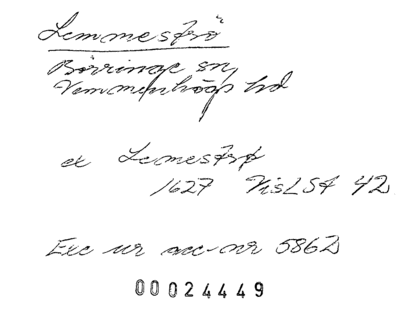 Lemmeströ
Börringe sn,
Vemmenhögs hd
ex Lemestrø
1627 VisLSt 42
Exc ur acc-nr 5862
00024449